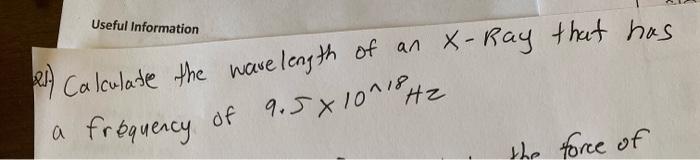 Useful Information
21) Calculate the wavelength of an X-Ray that has
a frequency of 9.5 x 10^18 Hz
the force of